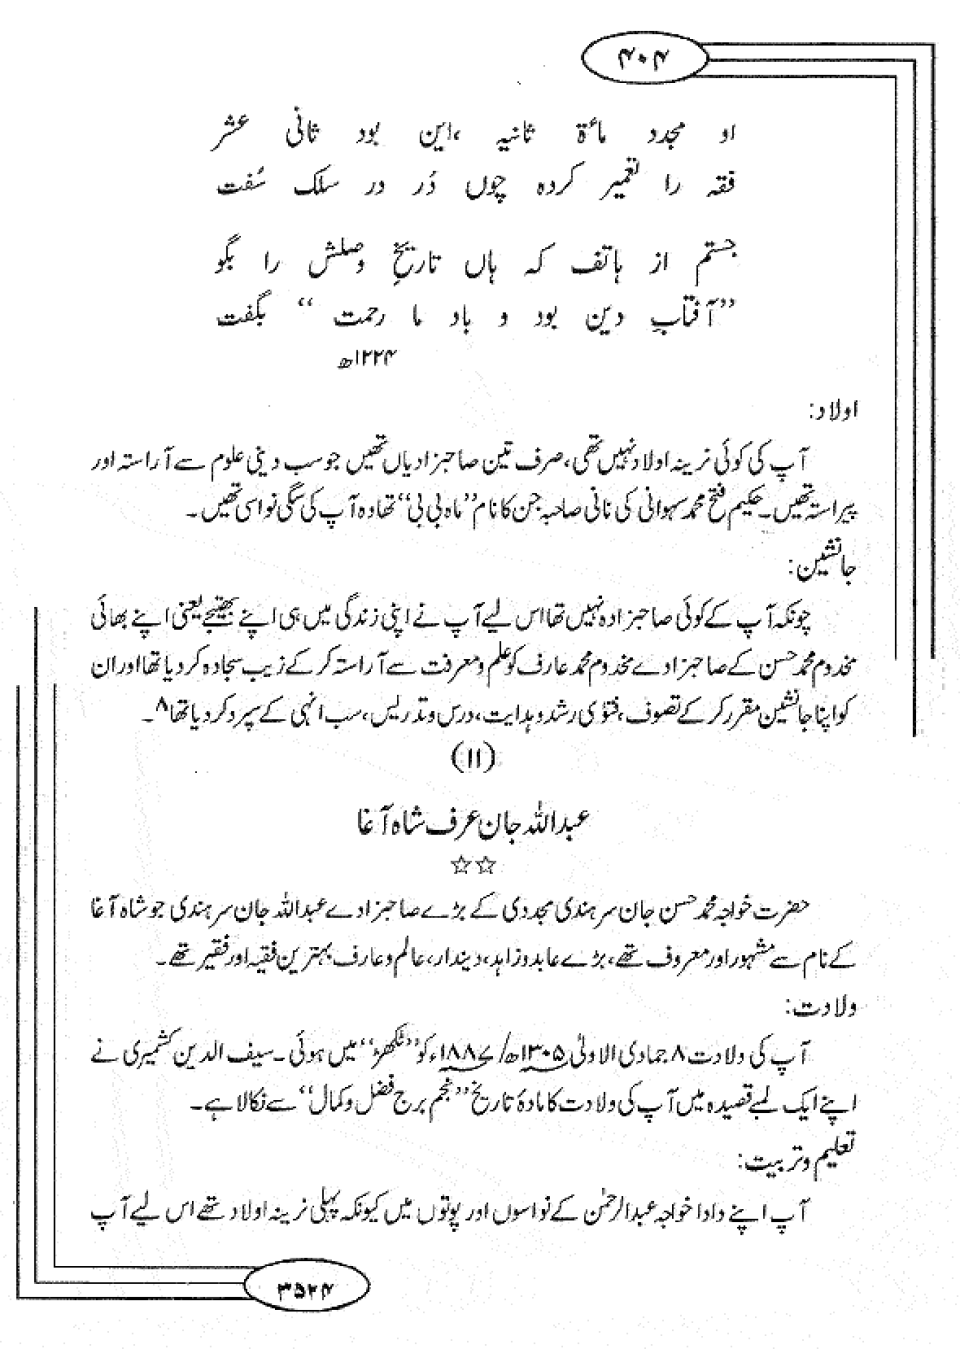 ۴۰۴
او مجدد مائۃ ثانیہ ،این بود ثانی عشر
فقہ را تعمیر کردہ چوں دُر در سلک سُفت
جستم از ہاتف کہ ہاں تاریخِ وصلش را بگو
”آفتابِ دین بود و باد ما رحمت“ بگفت
۱۲۲۴ھ
اولاد:
آپ کی کوئی نرینہ اولاد نہیں تھی، صرف تین صاحبزادیاں تھیں جو سب دینی علوم سے آراستہ اور
پیراستہ تھیں۔ حکیم فتح محمد سہوانی کی نانی صاحبہ جن کا نام ”ماہ بی بی“ تھا وہ آپ کی سگی نواسی تھیں۔
جانشین:
چونکہ آپ کے کوئی صاحبزادہ نہیں تھا اس لیے آپ نے اپنی زندگی میں ہی اپنے بھتیجے یعنی اپنے بھائی
مخدوم محمد حسن کے صاحبزادے مخدوم محمد عارف کو علم و معرفت سے آراستہ کر کے زیب سجادہ کر دیا تھا اور ان
کو اپنا جانشین مقرر کر کے تصوف، فتوٰی رشد و ہدایت، درس و تدریس، سب انہی کے سپرد کر دیا تھا۸۔
(۱۱)
عبداللہ جان عرف شاہ آغا
☆☆
حضرت خواجہ محمد حسن جان سرہندی مجددی کے بڑے صاحبزادے عبداللہ جان سرہندی جو شاہ آغا
کے نام سے مشہور اور معروف تھے، بڑے عابد و زاہد، دیندار، عالم و عارف بہترین فقیہ اور فقیر تھے۔
ولادت:
آپ کی ولادت ۸ جمادی الاولیٰ ۱۳۰۵ھ/ ۱۸۸۷ء کو ”ٹکھڑ“ میں ہوئی۔ سیف الدین کشمیری نے
اپنے ایک لمبے قصیدہ میں آپ کی ولادت کا مادۂ تاریخ ”نجم برج فضل و کمال“ سے نکالا ہے۔
تعلیم و تربیت:
آپ اپنے دادا خواجہ عبدالرحمٰن کے نواسوں اور پوتوں میں کیونکہ پہلی نرینہ اولاد تھے اس لیے آپ
۳۵۲۴